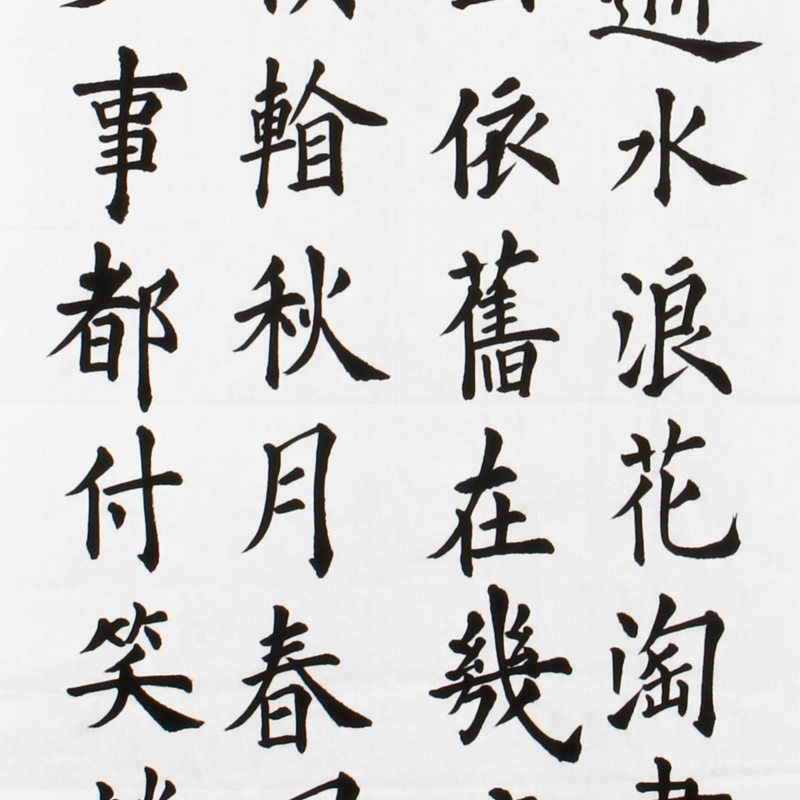 水浪花淘
依舊在幾
看秋月春
事都付笑